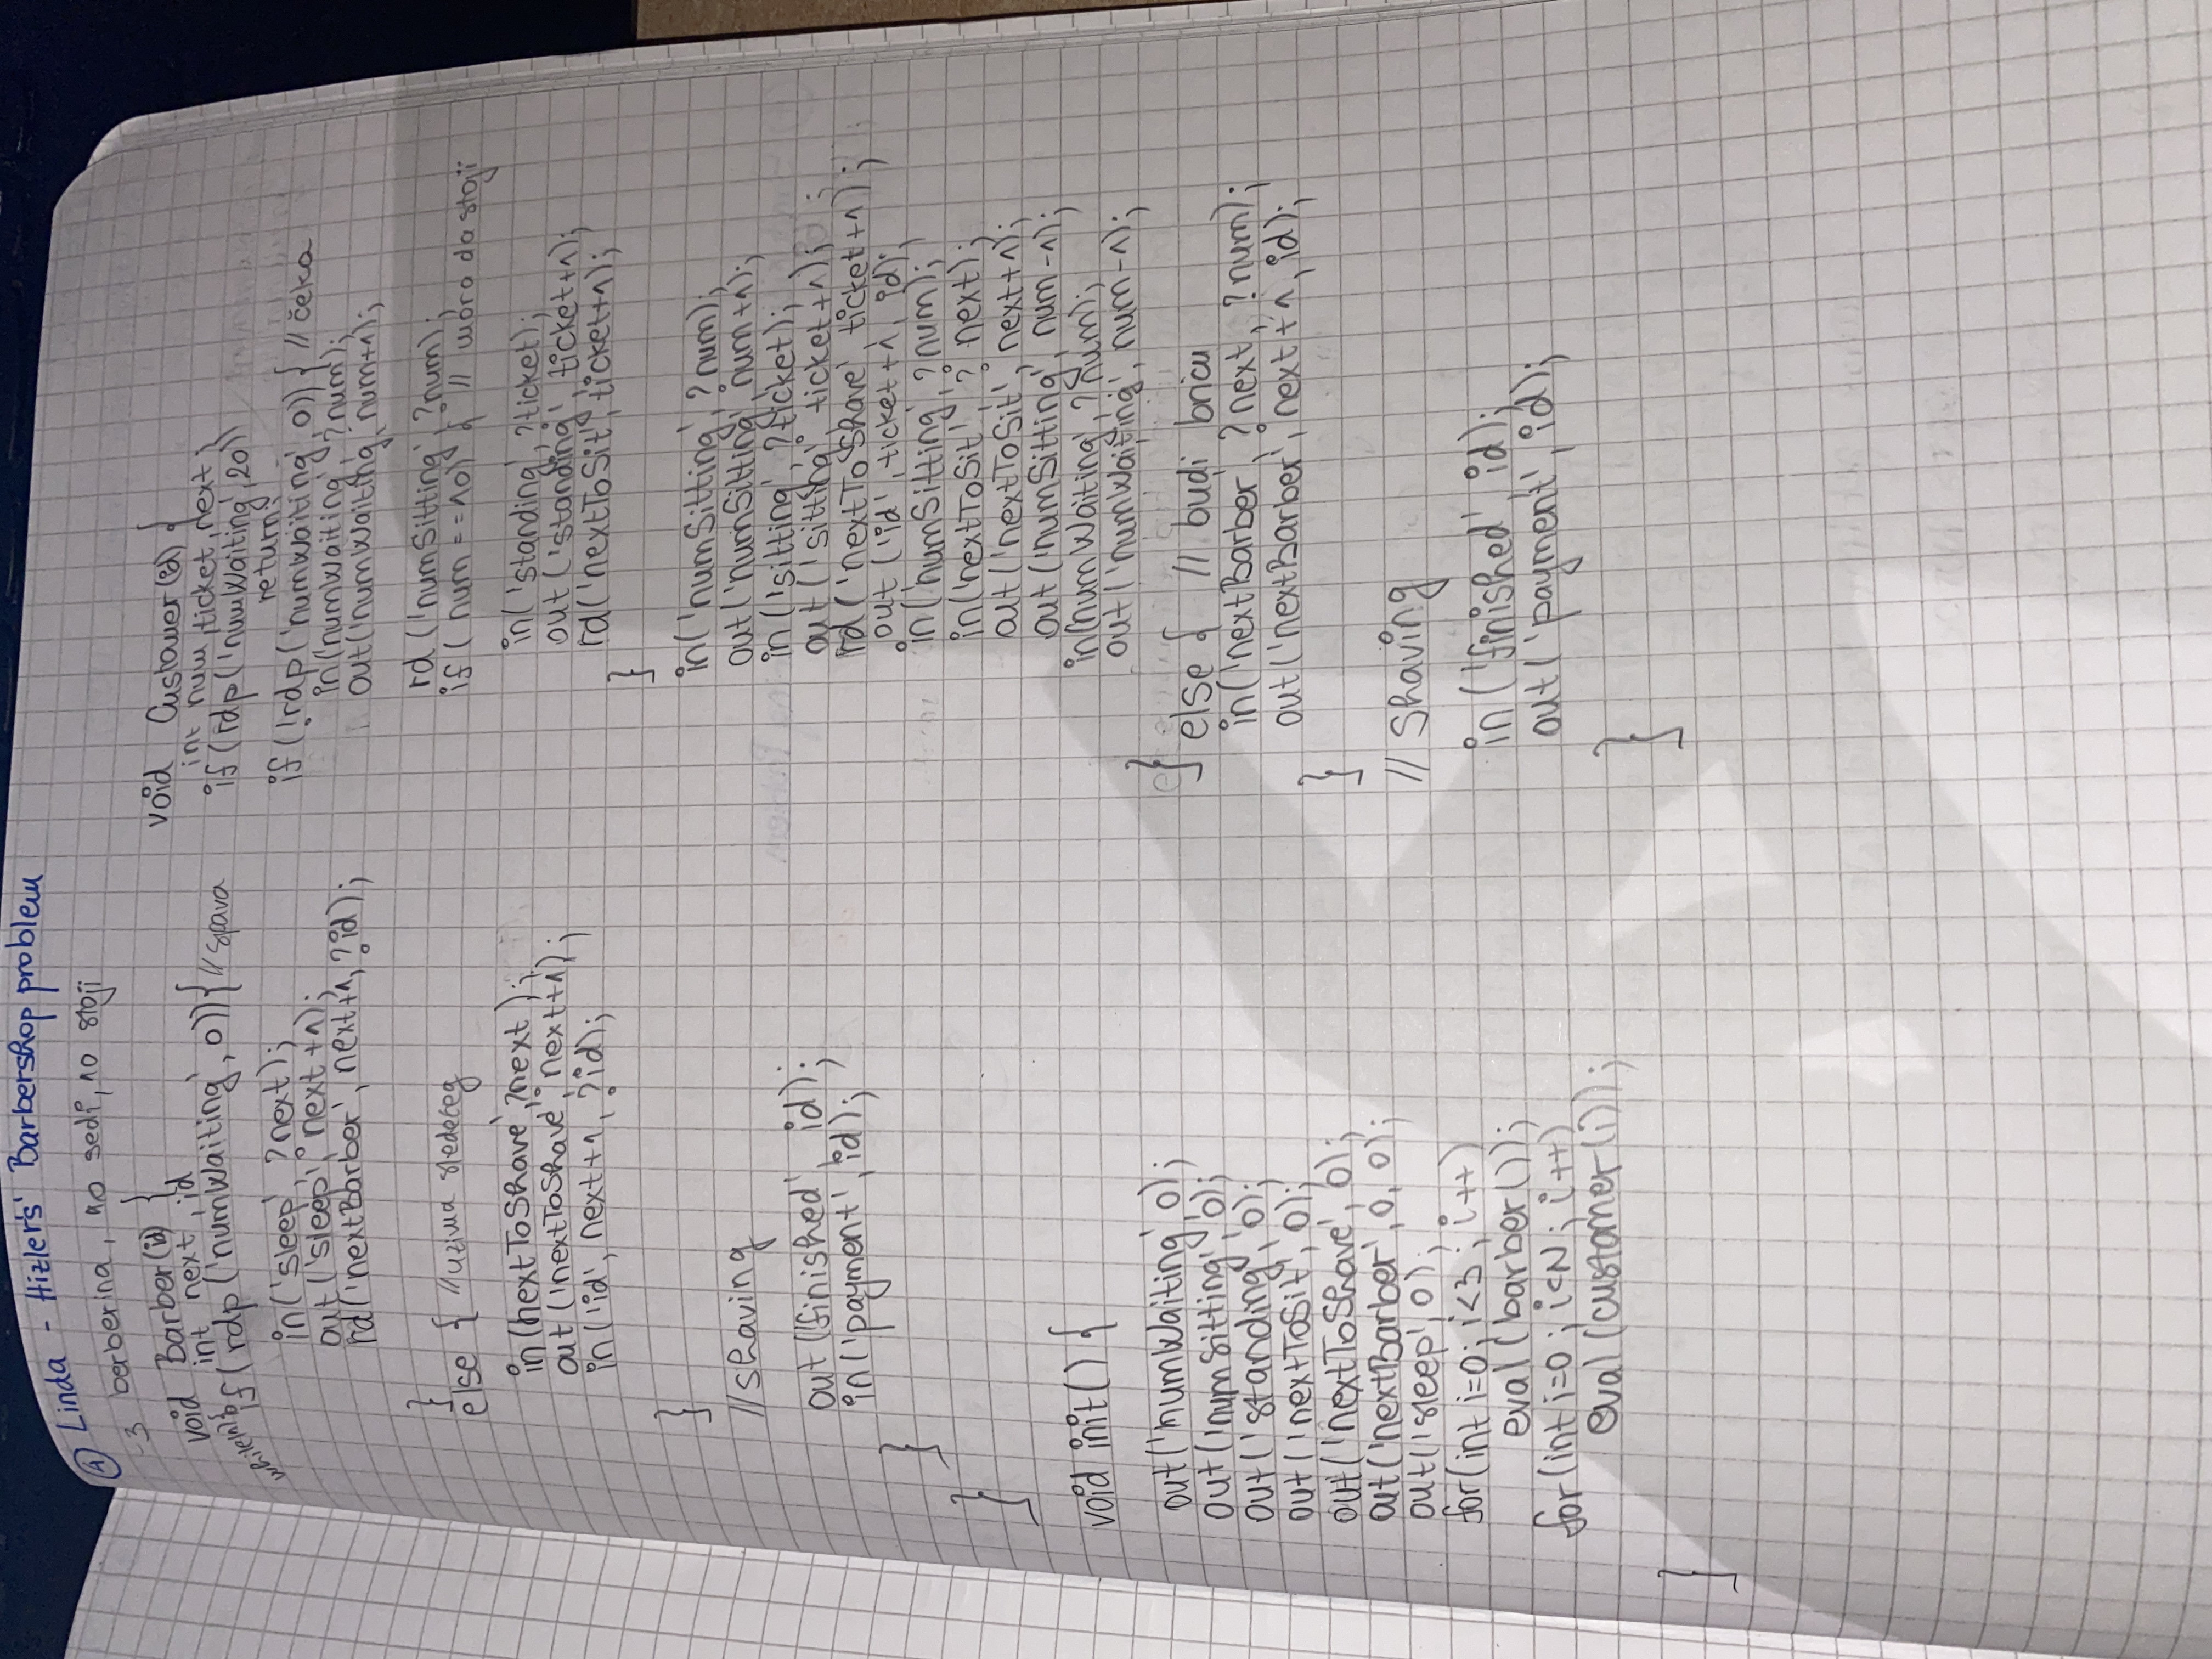 4 Linda - Hizler's' Barbershop problem
-3 berberina, 10 sedi, 10 stoji
void Barber(id) {
int next, id
while(1){
if(rdp('numWaiting', 0)){ //spava
in('sleep', ?next);
out('sleep', next+1);
rd('nextBarber', next+1, ?id);
}
else { //uzima sledeceg
in(nextToShave', ?next);
out('nextToShave', next+1);
in('id', next+1, ?id);
}
//shaving
out('finished', id);
in('payment', id);
}
}
void init() {
out('numWaiting', 0);
out('numSitting', 0);
out('standing', 0);
out('nextToSit', 0);
out('nextToShave', 0);
out('nextBarber', 0, 0);
out('sleep', 0);
for(int i=0; i<3; i++)
eval(barber());
for(int i=0; i<N; i++)
eval(customer(i));
}
void Customer(id) {
int num, ticket, next;
if(rdp('numWaiting', 20))
return;
if(!rdp('numWaiting', 0)) { // čeka
in('numWaiting', ?num);
out('numWaiting, num+1);
rd('numSitting', ?num);
if( num==10) { // mora da stoji
in('standing', ?ticket);
out('standing', ticket+1);
rd('nextToSit', ticket+1);
}
in('numSitting', ?num);
out('numSitting', num+1);
in('sitting', ?ticket);
out('sitting', ticket+1);
rd('nextToShave', ticket+1);
out('id', ticket+1, id);
in('numSitting', ?num);
in('nextToSit', ? next);
out('nextToSit', next+1);
out('numSitting', num-1);
in(numWaiting', ?num);
out('numWaiting', num-1);
}
else { // budi bricu
in('nextBarber', ?next, ?num);
out('nextBarber', next+1, id);
}
// shaving
in('finished', id);
out('payment', id);
}